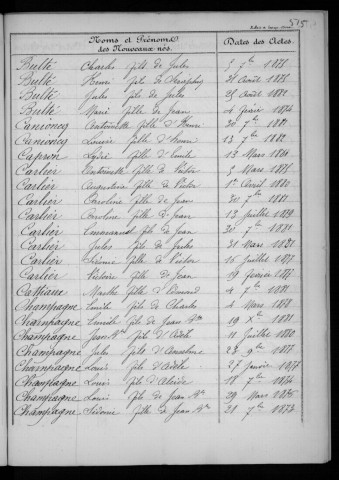 515
Noms et Prénoms
des Nouveaux nés.
Dates des Actes.
Bulté Charles fils de Jules 5 7bre 1878
Bulté Henri fils d' 28 Août 1878
Bulté Jules fils de Jules 25 Août 1872
Bulté Marie fille de Jean 4 février 1874
Antoinette fille d'Henri 30 7bre 1881
Louise fille d'Henri 13 7bre 1882
Capron fille d'Emile 13 Mars
Carlier Antoinette fille de Victor 5 Mars 1878
Carlier Augustine fille de Victor 1er Avril 1880
Carlier Caroline fille de Jean 30 7bre 1881
Carlier Caroline fille de Jean 12 Juillet 1879
Carlier Emmanuel fils de Jean 30 7bre 1881
Carlier Jules fils de Jules 31 Mars 1881
Carlier fils de Victor 15 Juillet 1877
Carlier Victoire fille de Jean 19 février 1877
Marthe fille d' 4 7bre 1881
Champagne Emile fils de Charles 4 Mars 1878
Champagne Emile fils de Jean Bte 19 Xbre 1881
Champagne Jean Bte fils d'Adèle 11 Juillet 1880
Champagne Jules fils d'Anselme 23 9bre 1877
Champagne Louis fils d'Adèle 27 Janvier
Champagne Louis fils d'Alcide 18 7bre
Champagne Louis fils de Jean Bte 29 Mars 1876
Champagne Sidonie fille de Jean Bte 21 7bre 1873